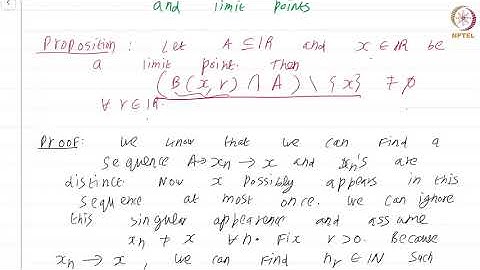 and limit points
NPTEL
Proposition: Let A ⊆ IR and x ∈ IR be
a limit point. Then
(B(x, r) ∩ A) \ {x} ≠ ∅
∀ r ∈ IR.
Proof: We know that we can find a
sequence A∋xn → x and xn's are
distinct. Now x possibly appears in this
sequence at most once. We can ignore
this singular appearence and assume
xn ≠ x ∀ n. Fix r > 0. Because
xn → x, we can find nr ∈ IN such